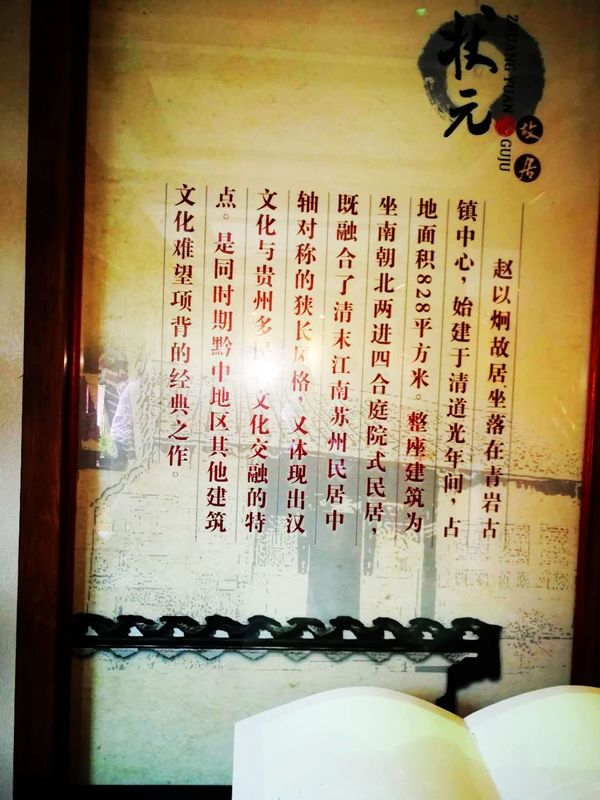 状元
ZHUANG YUAN
故居
GUJU
赵以炯故居坐落在青岩古
镇中心，始建于清道光年间，占
地面积828平方米。整座建筑为
坐南朝北两进四合庭院式民居，
既融合了清末江南苏州民居中
轴对称的狭长风格，又体现出汉
文化与贵州多民 文化交融的特
点。是同时期黔中地区其他建筑
文化难望项背的经典之作。